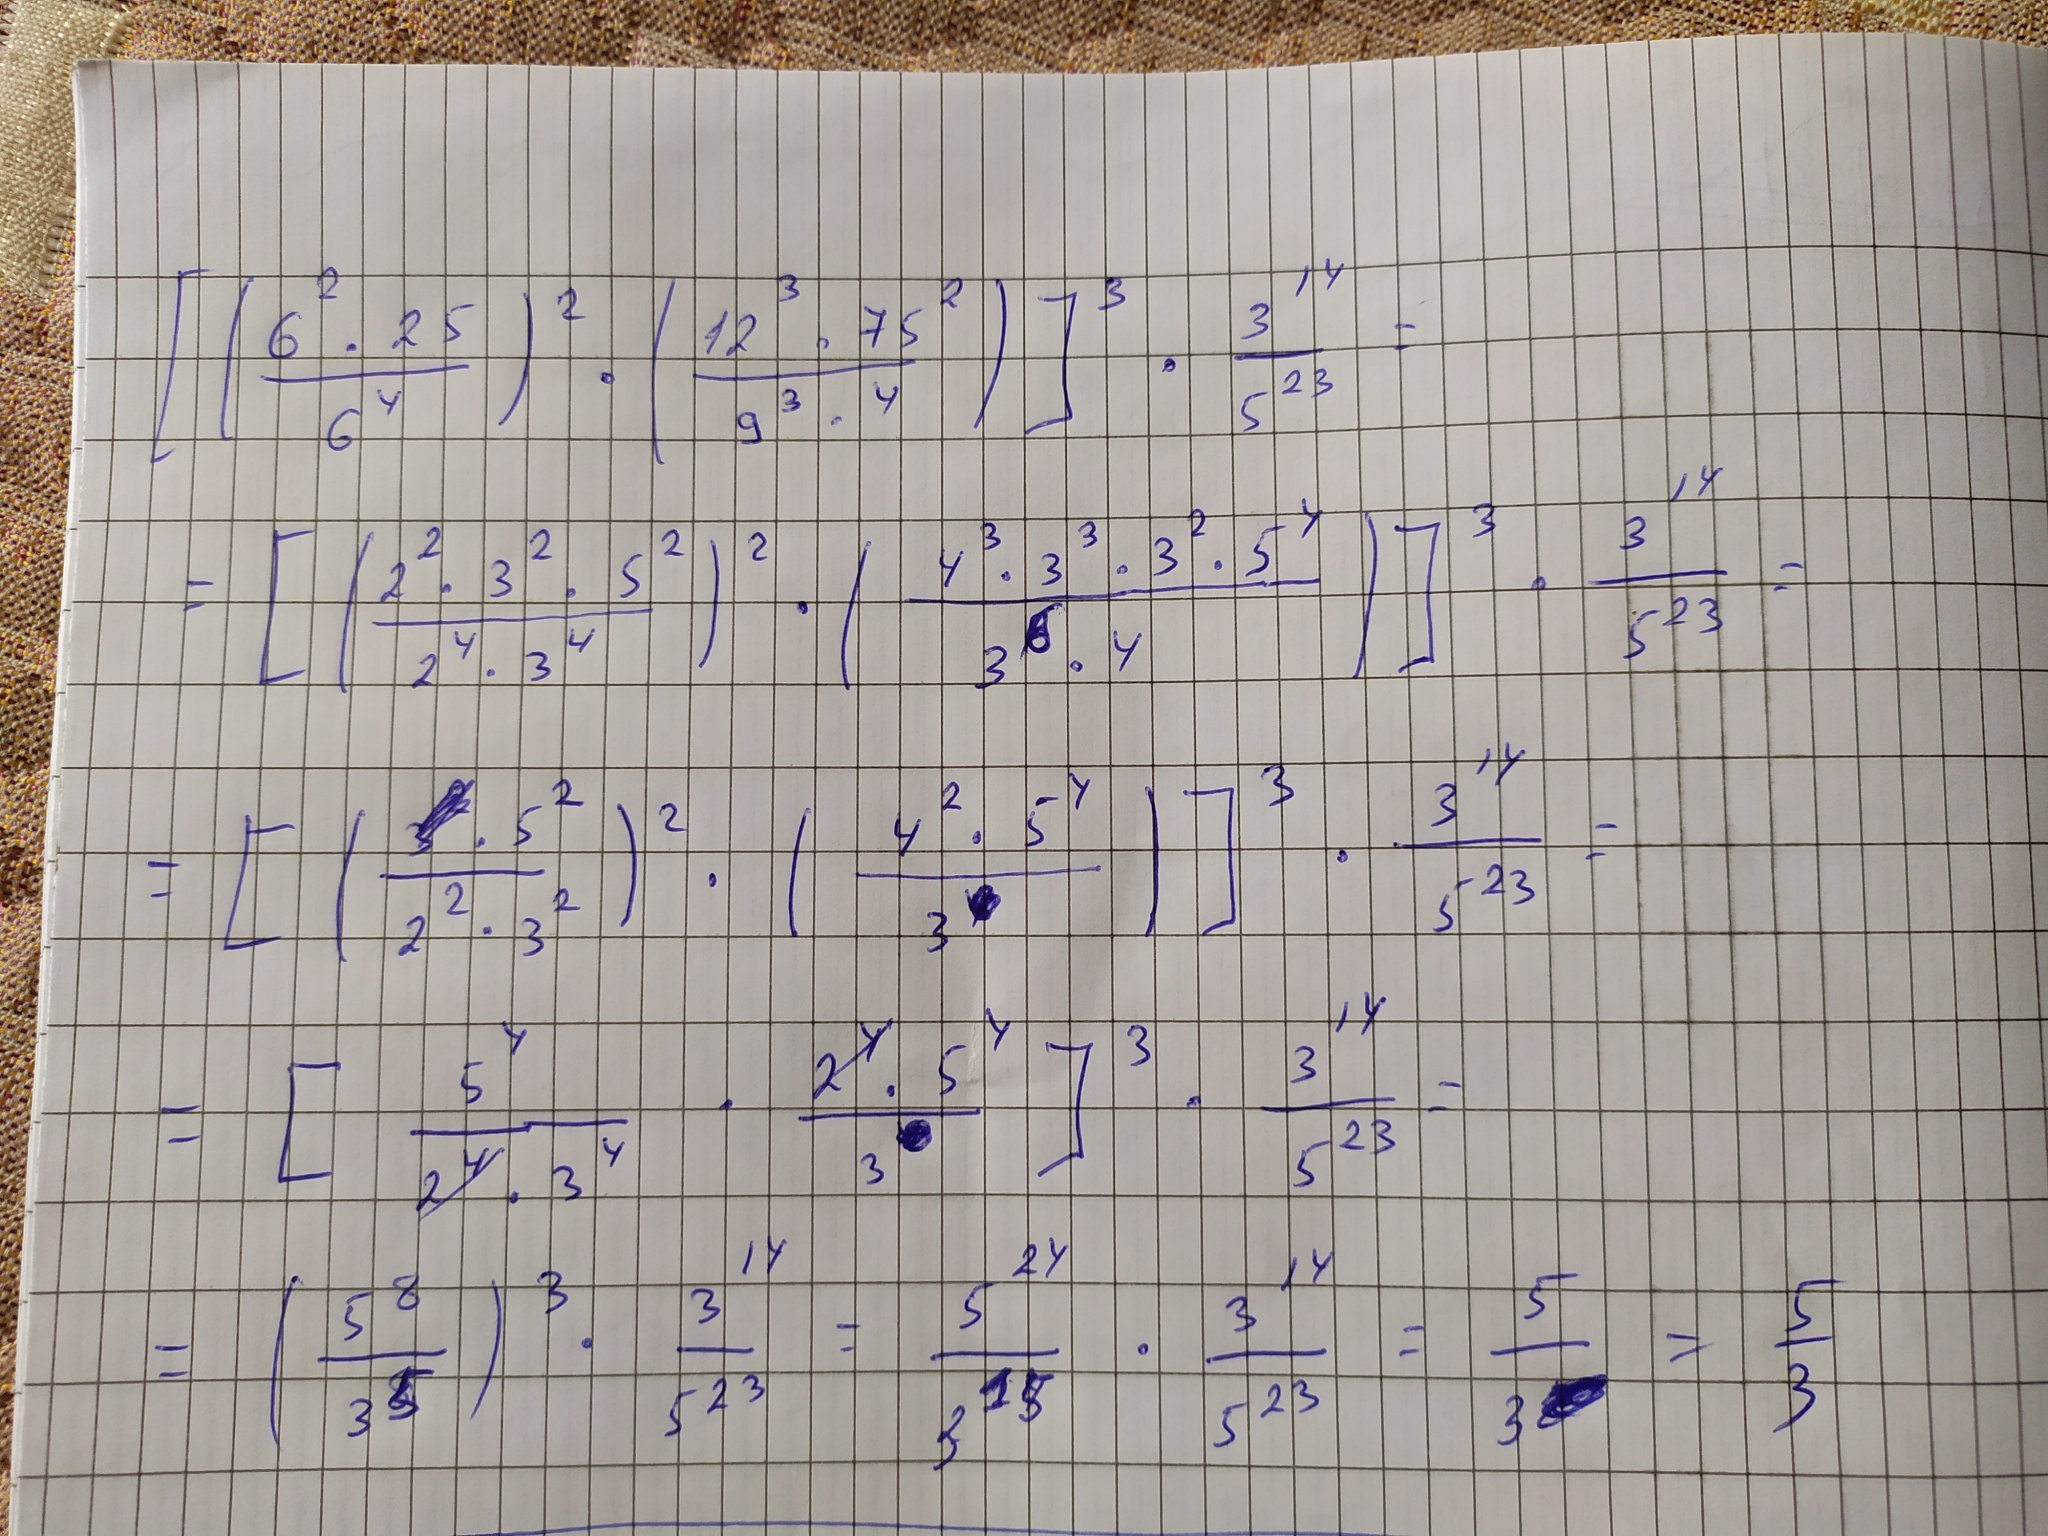 [(6² · 25 / 6⁴)² · (12³ · 75² / 9³ · 4)]³ · 3¹⁴ / 5²³ =
= [(2² · 3² · 5² / 2⁴ · 3⁴)² · (4³ · 3³ · 3² · 5⁴ / 3⁶ · 4)]³ · 3¹⁴ / 5²³ =
= [( · 5² / 2² · 3²)² · (4² · 5⁴ / 3)]³ · 3¹⁴ / 5²³ =
= [5⁴ / 2⁴ · 3⁴ · 2⁴ · 5⁴ / 3]³ · 3¹⁴ / 5²³ =
= (5⁸ / 3⁵)³ · 3¹⁴ / 5²³ = 5²⁴ / 3¹⁵ · 3¹⁴ / 5²³ = 5 / 3 = 5 / 3